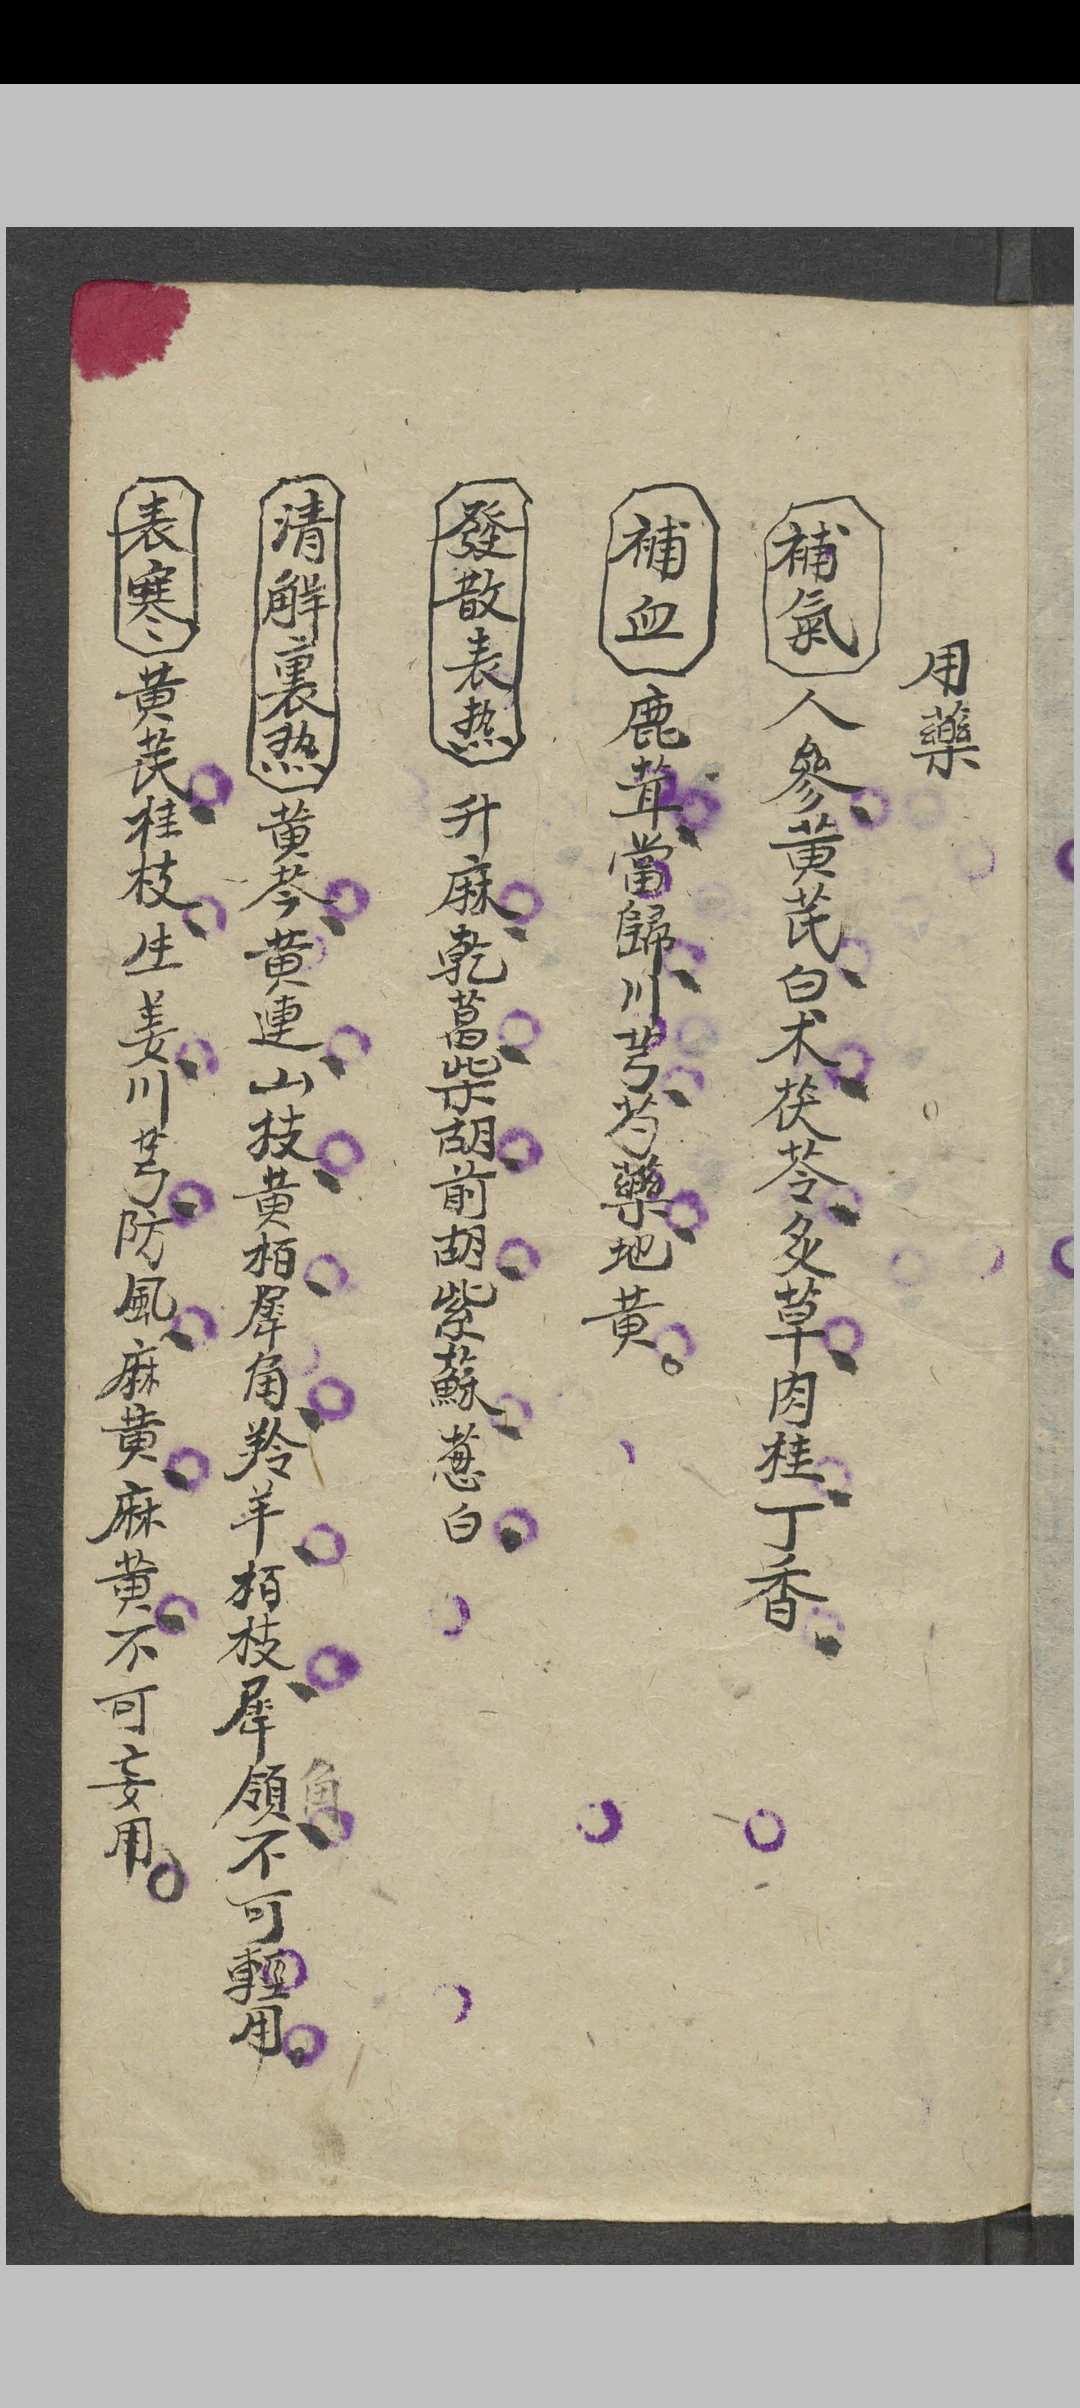 用藥
補氣 人參黃芪白术茯苓炙草肉桂丁香
補血 鹿茸當歸川芎芍藥地黃。
發散表热 升麻乾葛柴胡前胡紫蘇葱白
清解裏热 黃芩黃連山枝黃栢犀角羚羊栢枝犀領不可輕用。
角
表寒 黃芪桂枝生姜川芎防風麻黃麻黃不可妄用。